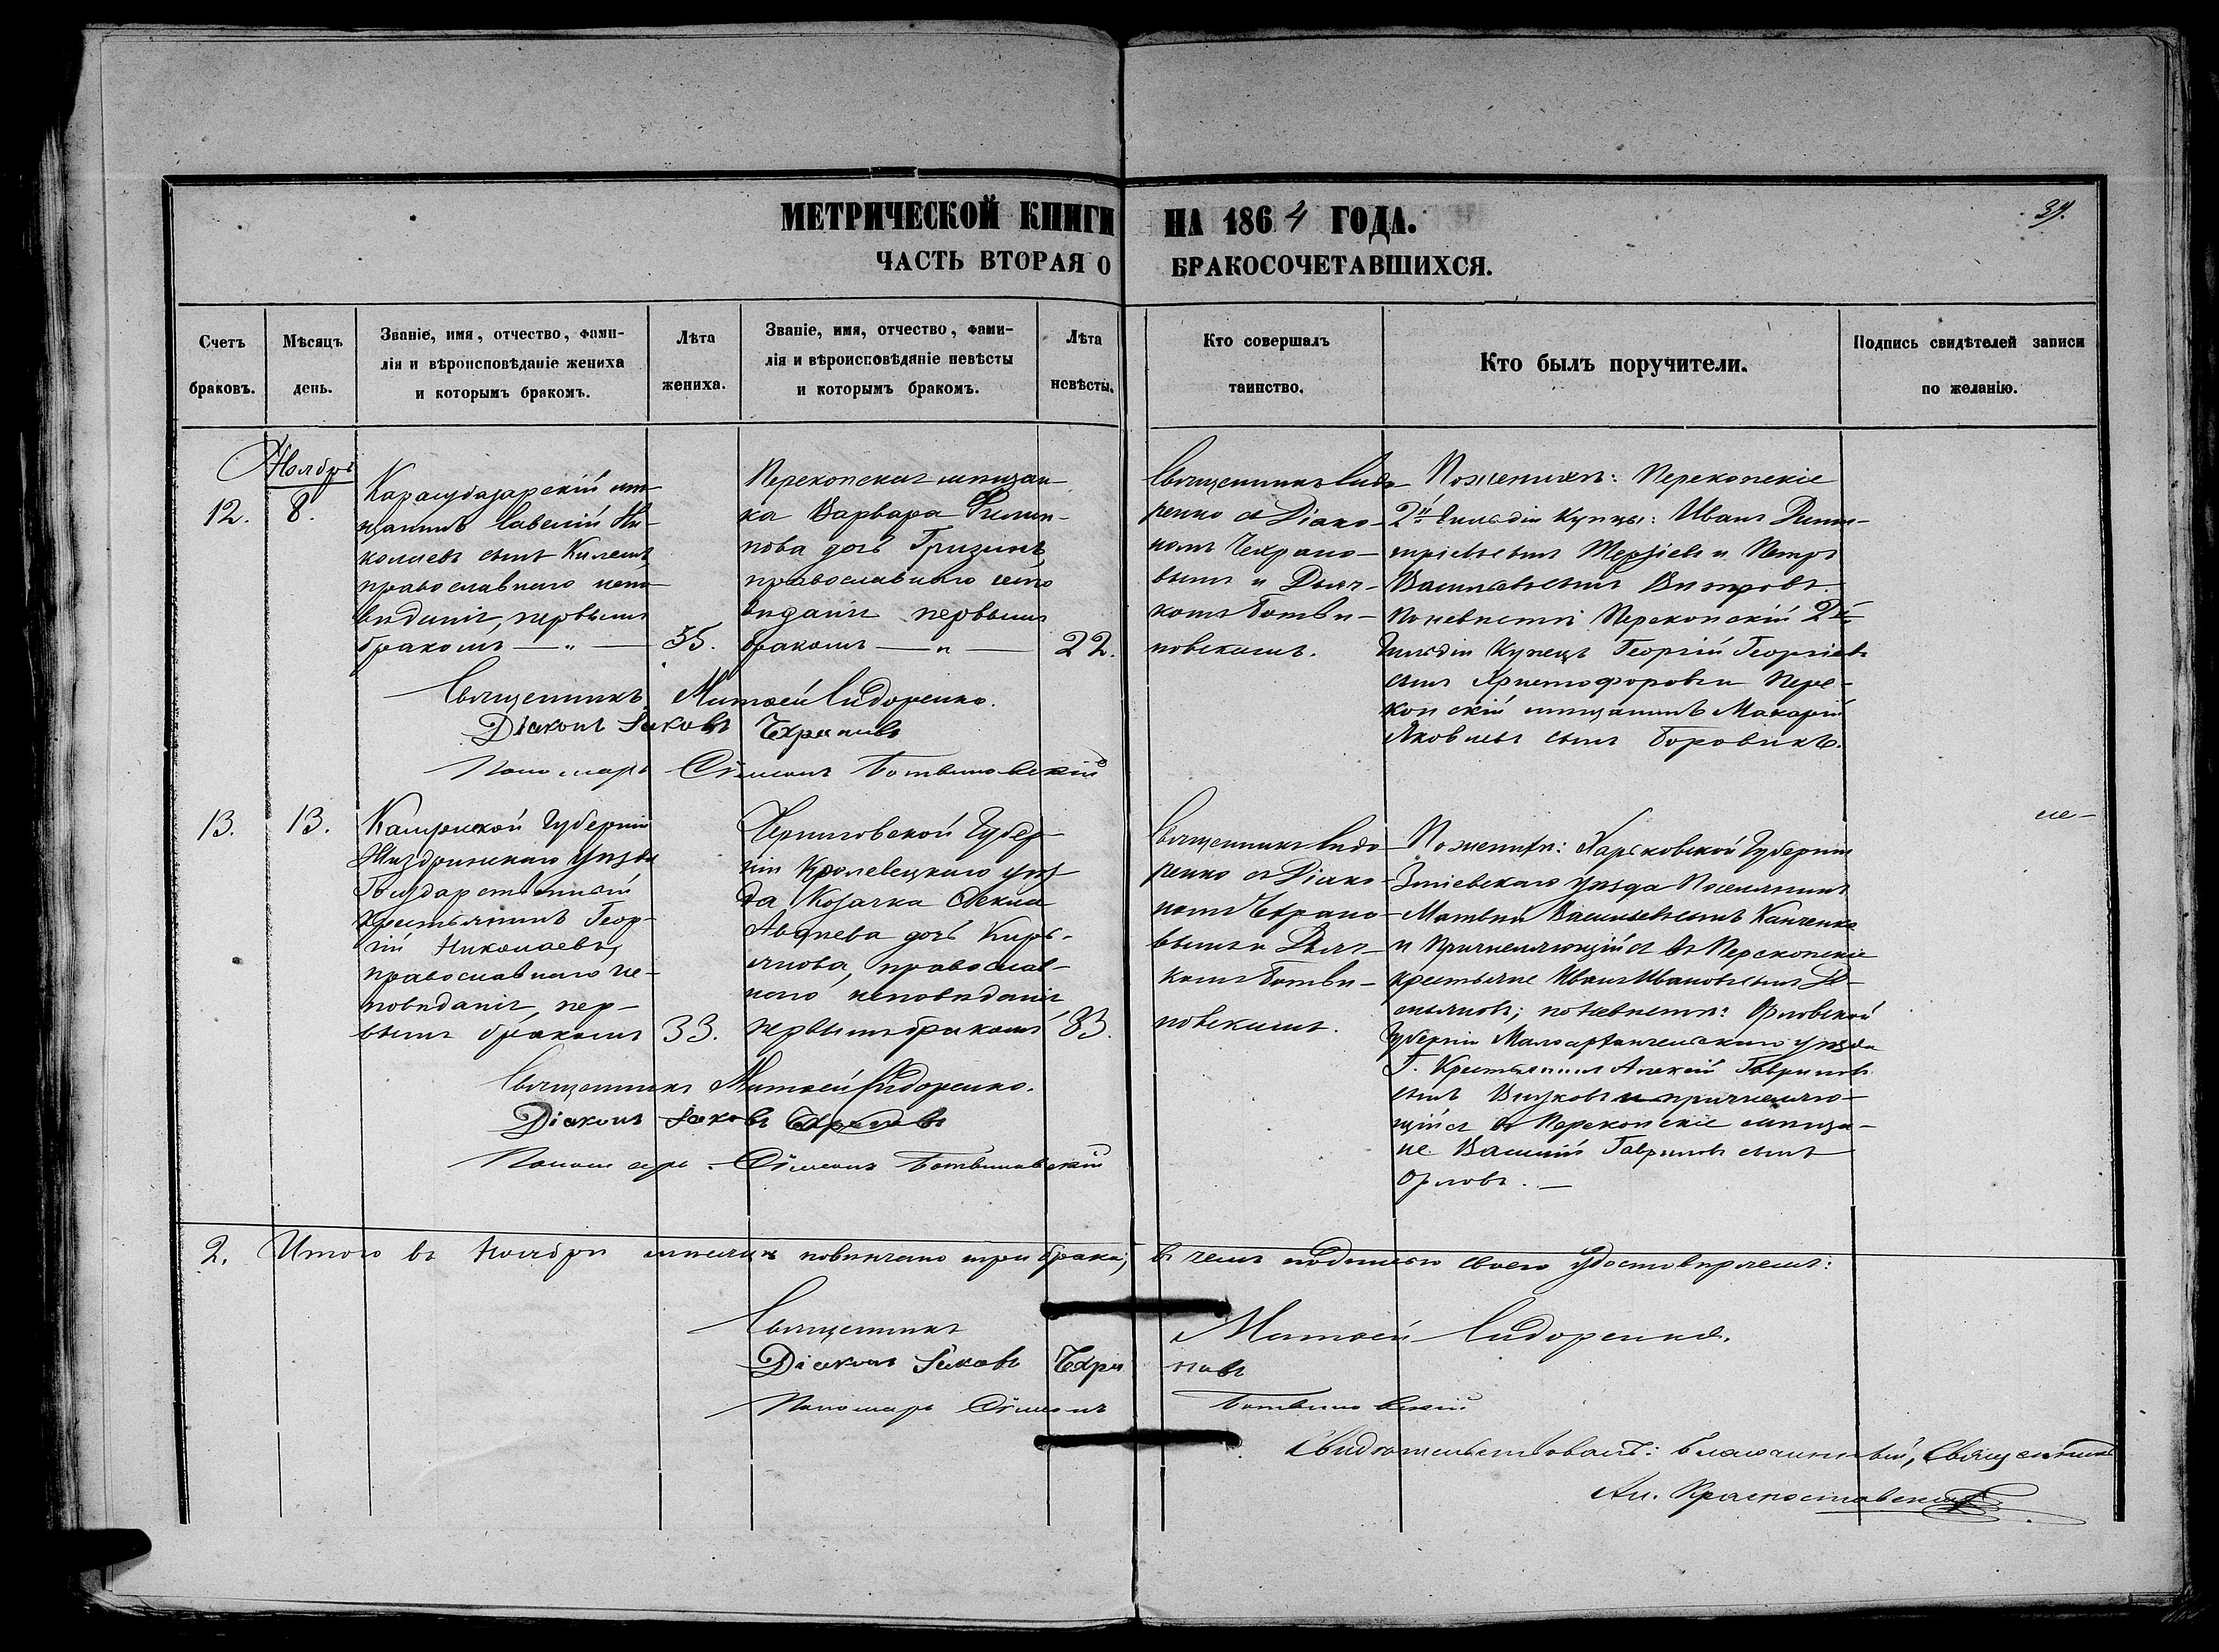 МЕТРИЧЕСКОЙ КНИГИ НА 1864 ГОДА.
ЧАСТЬ ВТОРАЯ О БРАКОСОЧЕТАВШИХСЯ.
Счетъ браковъ.
Мѣсяцъ день.
Званіе, имя, отчество, фами-
лія и вѣроисповѣданіе жениха
и которымъ бракомъ.
Лѣта жениха.
Званіе, имя, отчество, фами-
лія и вѣроисповѣданіе невѣсты
и которымъ бракомъ.
Лѣта невѣсты.
Кто совершалъ
таинство.
Кто былъ поручители.
Подпись свидѣтелей записи
по желанію.
Ноябрь
12.
8.
Карасубазарскій мѣ-
щанинъ Савелій Ни-
колаевъ сынъ
православнаго испо-
вѣданія, первымъ
бракомъ — „ —
35.
Перекопская мѣщан-
ка Варвара Филип-
пова дочь
православнаго испо
вѣданія первымъ
бракомъ — „ —
22.
Священникъ Сидо-
ренко съ Діако-
номъ Чехрано-
вымъ и Дьяч-
комъ Ботви-
новскимъ.
По женихѣ: Перекопскіе
2й Гильдіи Купцы: Иванъ Дими-
тріевъ сынъ Терзіевъ и Петръ
Васильевъ сынъ
По невѣстѣ Перекопскій 2й
Гильдіи Купецъ Георгій Георгіевъ
сынъ Христофоровъ и Пере-
копскій мѣщанинъ Макарій
Яковлевъ сынъ Боровикъ.
Священникъ Матѳей Сидоренко.
Діаконъ Іаковъ Чехрановъ
Пономарь Сѵмеонъ Ботвиновскій
13.
13.
Калужской Губерніи
Жиздринскаго уѣзда
Государственный
крестьянинъ Геор-
гій Николаевъ,
православнаго ис-
повѣданія, пер-
вымъ бракомъ
33.
Черниговской Губер-
ніи Кролевецкаго уѣз-
да Козачка Ѳекла
дочь Кирь-
янова, православ-
наго исповѣданія
первымъ бракомъ
33.
Священникъ Сидо-
ренко съ Діако-
номъ Чехрано-
вымъ и Дьяч-
комъ Ботви-
новскимъ.
По женихѣ: Харьковской Губерніи
Зміевскаго уѣзда Поселянинъ
Матвѣй Васильевъ сынъ
и причисляющійся въ Перекопскіе
крестьяне Иванъ Ивановъ сынъ Де-
мьяновъ; по невѣстѣ: Орловской
Губерніи Малоархангельскаго уѣзда
Г. Крестьянинъ Алексій Гавриловъ
сынъ и причисляю-
щійся въ Перекопскіе мѣща-
не Василій Гавриловъ сынъ
Орловъ. —
Священникъ Матѳей Сидоренко.
Діаконъ Іаковъ Чехрановъ
Пономарь Сѵмеонъ Ботвиновскій
2. Итого въ Ноябрѣ мѣсяцѣ повѣнчано три брака, въ чемъ подписью своею удостовѣряемъ:
Священникъ Матѳей Сидоренко.
Діаконъ Іаковъ Чехрановъ
Пономарь Сѵмеонъ Ботвиновскій
Свидѣтельствовалъ: Благочинный, Священникъ